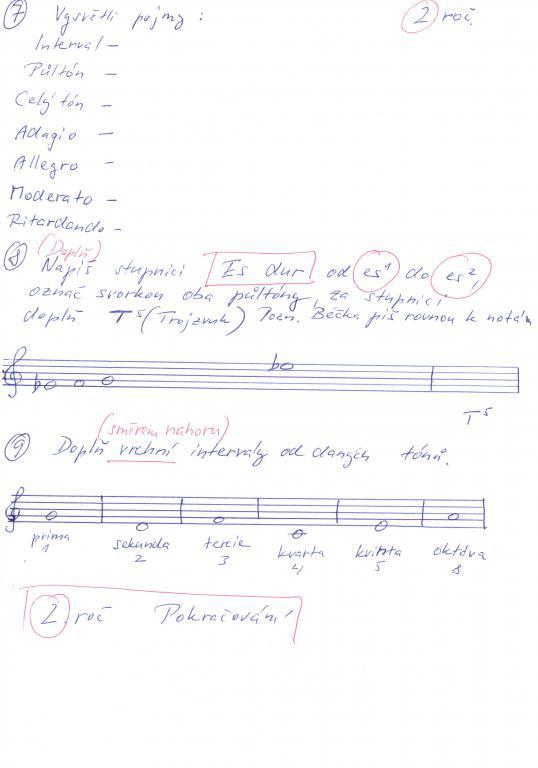 7 Vysvětli pojmy : 2 roč.
Interval –
Půltón –
Celý tón –
Adagio –
Allegro –
Moderato –
Ritardando –
(Doplň)
8 Napiš stupnici Es dur od es¹ do es²,
označ svorkou oba půltóny, za stupnici
doplň T⁵ (Trojzvuk) Pozn. Béčka piš rovnou k notám
T⁵
(směrem nahoru)
9 Doplň vrchní intervaly od daných tónů.
prima sekunda tercie kvarta kvinta oktáva
1 2 3 4 5 8
2. roč Pokračování